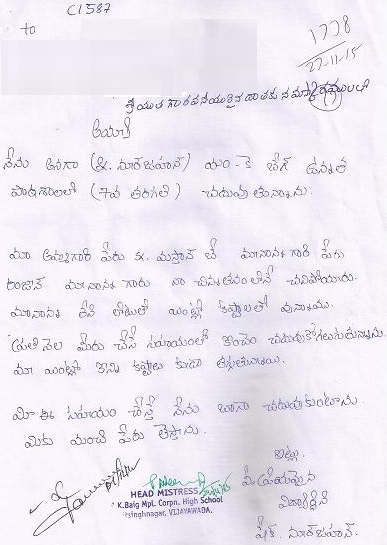 C1587
to
1778
27-11-15
శ్రీయుత గౌరవనీయులైన దాతకు నమస్కారములతో
ఆయ్యా
నేను అనగా (షేక్. నూర్జహాన్) యం.కె బేగ్ ఉన్నత
పాఠశాలలో (7వ తరగతి) చదువుతున్నాను.
మా అమ్మగారి పేరు sk. మస్తాన్ బీ మానాన్న గారి పేరు
రంజాన్ మానాన్న గారు నా చిన్నతనంలోనే చనిపోయారు.
మానాన్న లేని లోటుతో యింట్లో కష్టాలతో వున్నాము.
ప్రతి నెల మీరు చేసే సహాయంతో కొంచెం చదువుకోగలుగుతున్నాను.
మా యింట్లో కొన్ని కష్టాలు కూడా తీరుతున్నాయి.
మీ ఈ సహాయం చేస్తే నేను బాగా చదువుకుంటాను.
మీకు మంచి పేరు తెస్తాను.
ఇట్లు
మీ ప్రియమైన
విద్యార్థిని
షేక్. నూర్జహాన్.
HEAD MISTRESS
K.Baig Mpl. Corpn. High School
singhnagar, VIJAYAWADA.